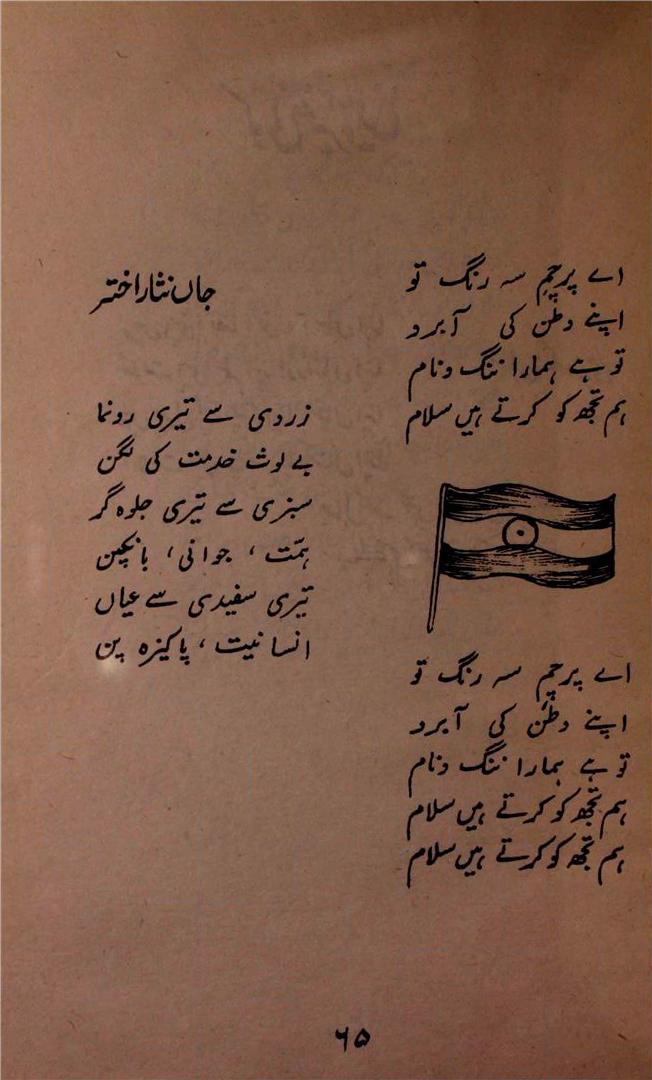 جاں نثار اختر
اے پرچمِ سہ رنگ تو
اپنے وطن کی آبرو
تو ہے ہمارا ننگ و نام
ہم تجھ کو کرتے ہیں سلام
زردی سے تیری رونما
بے لوث خدمت کی لگن
سبزی سے تیری جلوہ گر
ہمّت ، جوانی ، بانکپن
تیری سفیدی سے عیاں
انسانیت ، پاکیزہ پن
اے پرچمِ سہ رنگ تو
اپنے وطن کی آبرو
تو ہے ہمارا ننگ و نام
ہم تجھ کو کرتے ہیں سلام
ہم تجھ کو کرتے ہیں سلام
۶۵